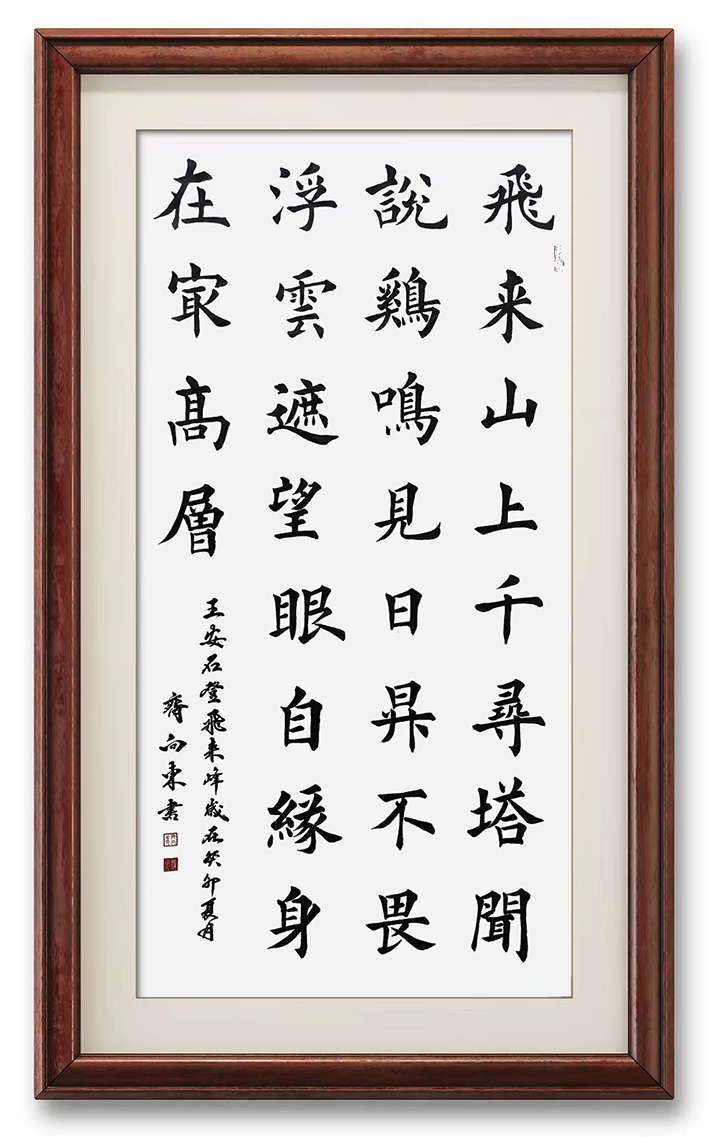 飛来山上千尋塔聞
說鷄鳴見日昇不畏
浮雲遮望眼自緣身
在冣高層
王安石登飛来峰歲在癸卯夏月
齊向東書